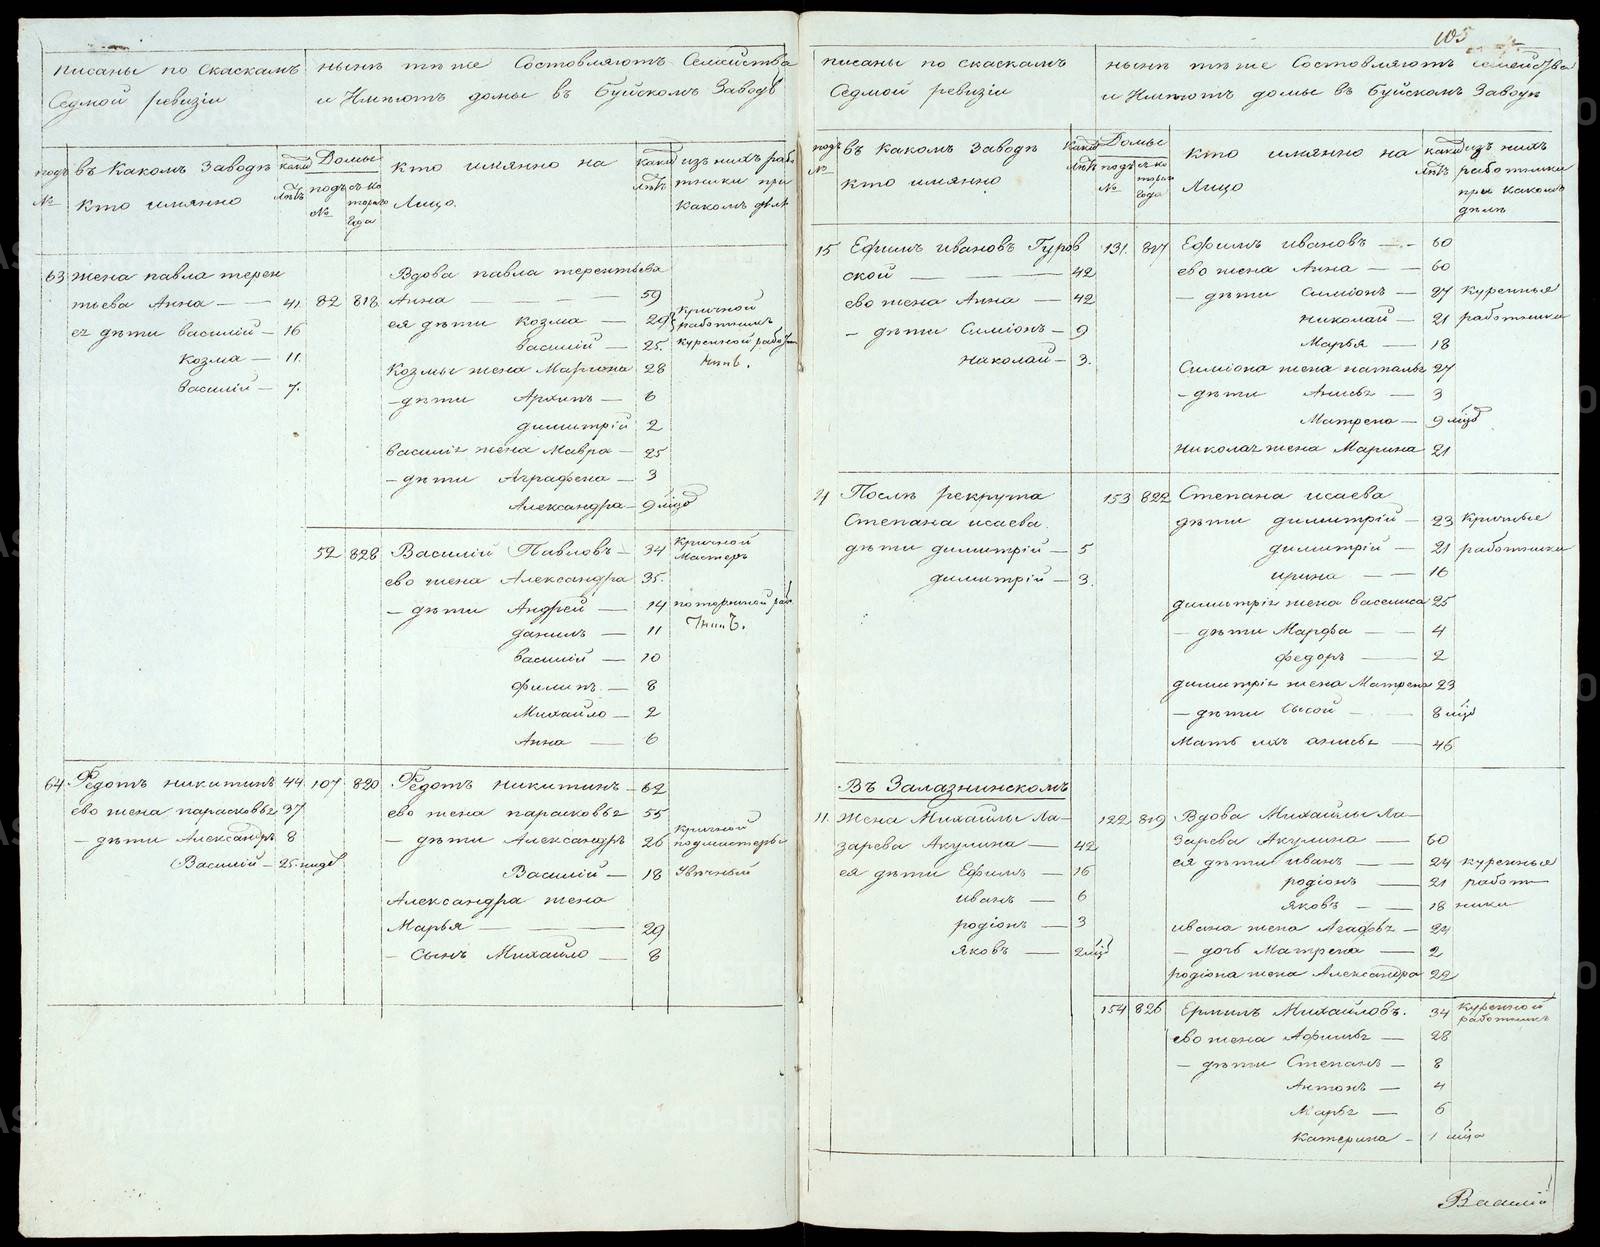 писаны по скаскамъ
Седмой ревизіи
нынѣ тѣ же Состовляютъ Семейства
и Имѣютъ домы въ Буйскомъ Заводѣ
подъ №
въ Какомъ Заводѣ
кто имянно
какихъ лѣтъ
Домы
подъ №
съ котораго года
кто имянно на
Лицо
какихъ лѣтъ
изъ нихъ работники при
какомъ дѣлѣ
63 жена павла терен
тьева Анна — 41
ег дѣти василій — 16
козма — 11
василій — 7.
82 818 Вдова павла терентьева
Анна — 59
ея дѣти козма — 29 кричной работникъ
василій — 25. куренной работникъ.
Козмы жена Марьяна 28
— дѣти Архипъ — 6
димитрій 2
василія жена Мавра — 25
— дѣти Аграфена — 3
Александра — 9 мѣсяцъ
52 828 Василій Павловъ — 34 кричной мастеръ
ево жена Александра 35.
— дѣти Андрей — 14
данилъ — 11
василій — 10
филипъ — 8
Михайло — 2
Анна — 6
64 Федотъ никитинъ 44
ево жена парасковья 37
— дѣти Александръ 8
Василій — 25. недѣль
107 820 Федотъ никитинъ — 62
ево жена парасковья 55
— дѣти Александръ 26 кричной подмастерье
Василій — 18 увѣчный
Александра жена
Марья — 29
— сынъ Михайло — 8
105
писаны по скаскамъ
Седмой ревизіи
нынѣ тѣ же Состовляютъ семейства
и Имѣютъ домы въ Буйскомъ Заводѣ
подъ №
въ Какомъ Заводѣ
кто имянно
какихъ лѣтъ
Домы
подъ №
съ котораго года
кто имянно на
Лицо
какихъ лѣтъ
изъ нихъ
работники
при какомъ
дѣлѣ
15 Ефимъ ивановъ Гуров
ской — 42
ево жена Анна — 42
— дѣти Симіонъ — 9
николай — 3.
131. 817 Ефимъ ивановъ — 60
ево жена Анна — 60
— дѣти Симіонъ — 27 куренныя
николай — 21 работники
Марья — 18
Симіона жена наталья 27
— дѣти Анисья — 3
Матрена — 9 мѣсяцъ
николая жена Марина 21
21 Послѣ рекрута
Степана исаева
дѣти димитрій — 5
димитрій — 3.
153 822 Степана исаева
дѣти димитрій — 23 кричные
димитрій — 21 работники
ирина — 16
димитрія жена василиса 25
— дѣти Марфа — 4
федоръ — 2
димитрія жена Матрена 23
— дѣти сысой — 8 мѣсяцъ
Мать ихъ анисья — 46
Въ Залазнинскомъ
11. Жена Михаилы Ла—
зарева Акулина — 42
ея дѣти Ефимъ — 16
иванъ — 6
родіонъ — 3
яковъ — 2 мѣсяцъ
122 819 Вдова Михаилы Ла—
зарева Акулина — 60
ея дѣти иванъ — 24 куренныя
родіонъ — 21 работ—
яковъ — 18 ники
ивана жена Агафья — 24
— дочь Матрена — 2
родіона жена Александра 22
154 826 Ермилъ Михаиловъ. 34 куренной работникъ
ево жена Афимья — 28
— дѣти Степанъ — 8
Антонъ — 4
Марья — 6
катерина — 1 мѣсяцъ
Василій